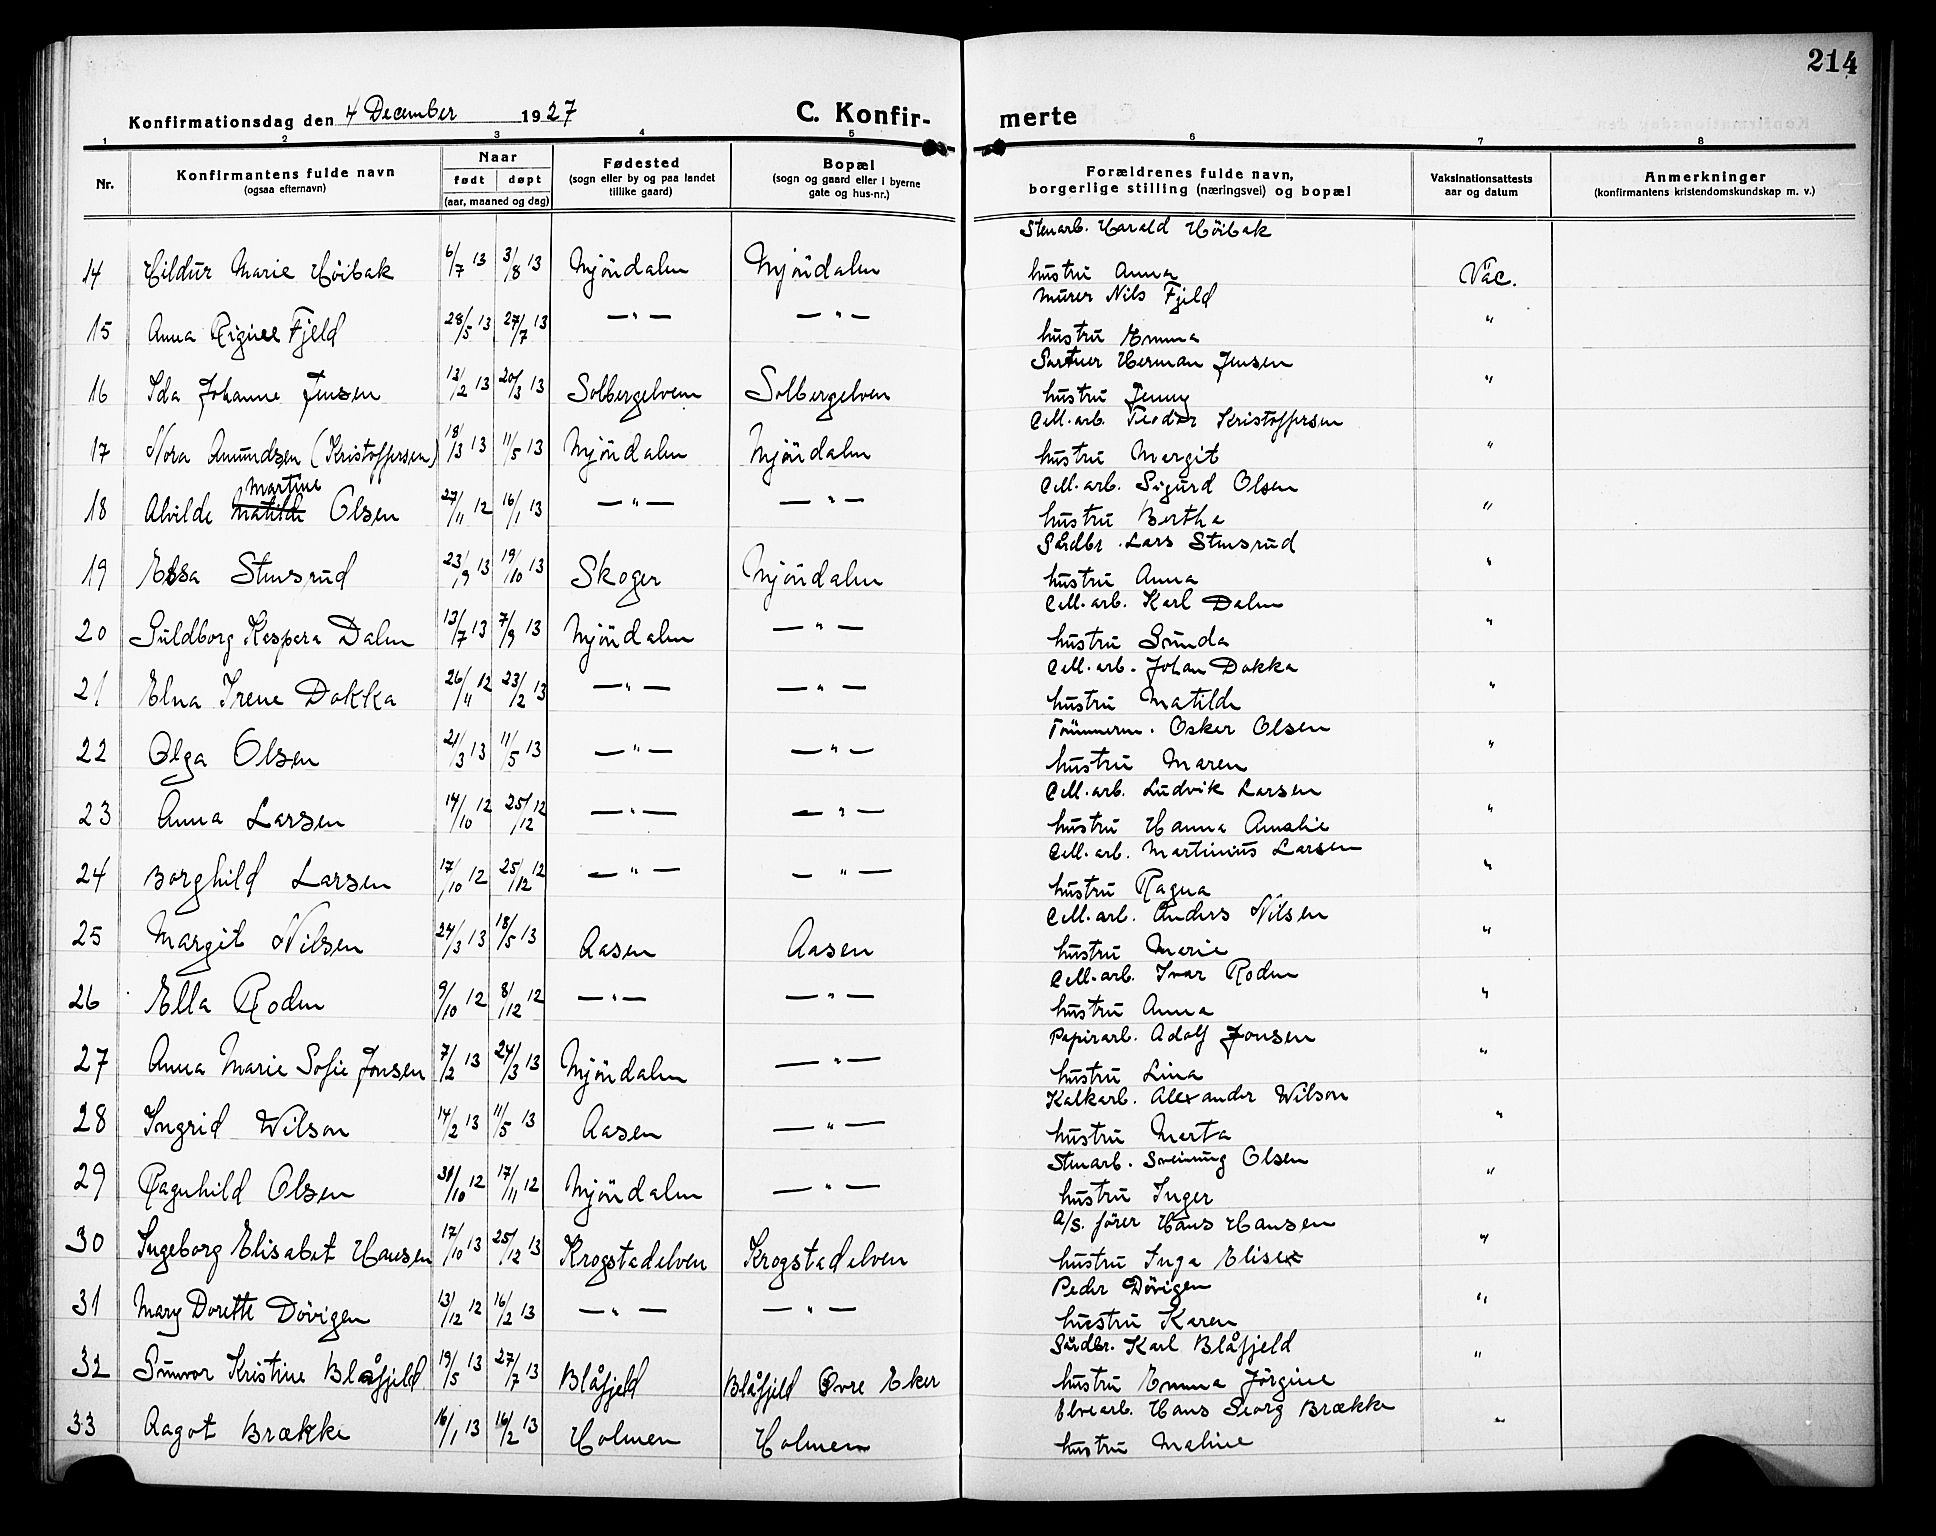 214
Konfirmationsdag den 4 December 1927 C. Konfirmerte
1 2 3 4 5 6 7 8
Nr. | Konfirmantens fulde navn (ogsaa efternavn) | Naar født døpt (aar, maaned og dag) | Fødested (sogn eller by og paa landet tillike gaard) | Bopæl (sogn og gaard eller i byerne gate og hus-nr.) | Forældrenes fulde navn, borgerlige stilling (næringsvei) og bopæl | Vaksinationsattests aar og datum | Anmerkninger (konfirmantens kristendomskundskap m. v.)
Stenarb. Harald Høibak
14 Hildur Marie Høibak 6/7 13 3/8 13 Mjöndalen Mjöndalen hustru Anna Vac.
Murer Nils Fjeld
15 Anna Fjeld 28/5 13 27/7 13 — " — — " — hustru Emma "
Herman Jensen
16 Ida Johanne Jensen 13/2 13 20/3 13 Solbergelven Solbergelven hustru Jenny "
Cell. arb. Teodor Kristoffersen
17 Nora Amundsen (Kristoffersen) 18/3 13 11/5 13 Mjöndalen Mjöndalen hustru Margit "
Cell. arb. Sigurd Olsen
18 Alvilde Matilde Martine Olsen 27/11 12 16/1 13 — " — — " — hustru Berthe "
Gårdbr. Lars Stensrud
19 Elsa Stensrud 23/9 13 19/10 13 Skoger Mjöndalen hustru Anna "
Cell. arb. Karl Dalen
20 Guldborg Kaspara Dalen 13/7 13 7/9 13 Mjöndalen — " — hustru Gunda "
Cell. arb. Johan Dokka
21 Elna Irene Dokka 26/11 12 23/2 13 — " — — " — hustru Matilde "
Tömmerm. Oskar Olsen
22 Olga Olsen 21/3 13 11/5 13 — " — — " — hustru Maren "
Cell. arb. Ludvik Larsen
23 Anna Larsen 14/10 12 25/12 12 — " — — " — hustru Hanna Amalie "
Cell. arb. Martinius Larsen
24 Borghild Larsen 17/10 12 25/12 12 — " — — " — hustru Ragna "
Cell. arb. Anders Nilsen
25 Margit Nilsen 24/3 13 18/5 13 Aasen Aasen hustru Marie "
Cell. arb. Ivar Roden
26 Ella Roden 9/10 12 8/12 12 — " — — " — hustru Anna "
Papirarb. Adolf Jonsen
27 Anna Marie Sofie Jonsen 7/2 13 24/3 13 Mjöndalen — " — hustru Lina "
Kalkarb. Alexander Wilson
28 Ingrid Wilson 14/2 13 11/5 13 Aasen — " — hustru Marta "
Stenarb. Sveinung Olsen
29 Ragnhild Olsen 30/10 12 17/11 12 Mjöndalen — " — hustru Inger "
A/S. fører Hans Hansen
30 Ingeborg Elisabet Hansen 17/10 13 25/12 13 Krogstadelven Krogstadelven hustru Inga Elise "
Peder Dövigen
31 Mary Dorette Dövigen 13/12 12 16/2 13 — " — — " — hustru Karen "
Gårdbr. Karl Blåfjeld
32 Gunvor Kristine Blåfjeld 19/5 13 27/7 13 Blåfjeld Blåfjeld Øvre Eker hustru Emma Jörgine "
Elvearb. Hans Georg Brække
33 Aagot Brække 16/1 13 16/2 13 Holmen Holmen hustru Maline "